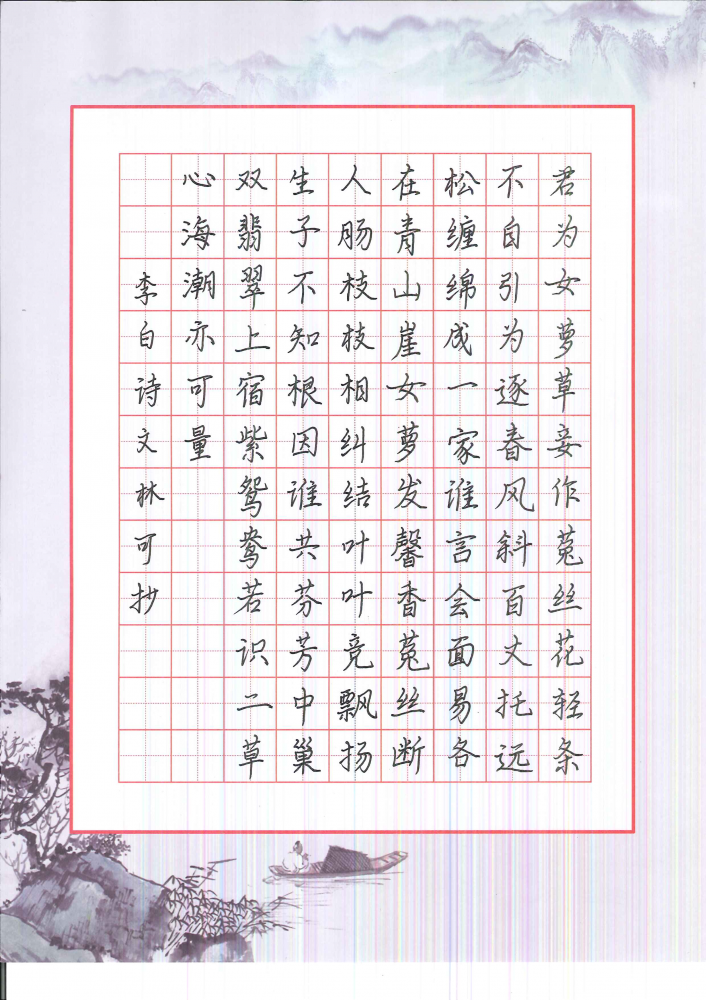 君为女萝草妾作菟丝花轻条
不自引为逐春风斜百丈托远
松缠绵成一家谁言会面易各
在青山崖女萝发馨香菟丝断
人肠枝枝相纠结叶叶竞飘扬
生子不知根因谁共芬芳中巢
双翡翠上宿紫鸳鸯若识二草
心海潮亦可量
李白诗文林可抄